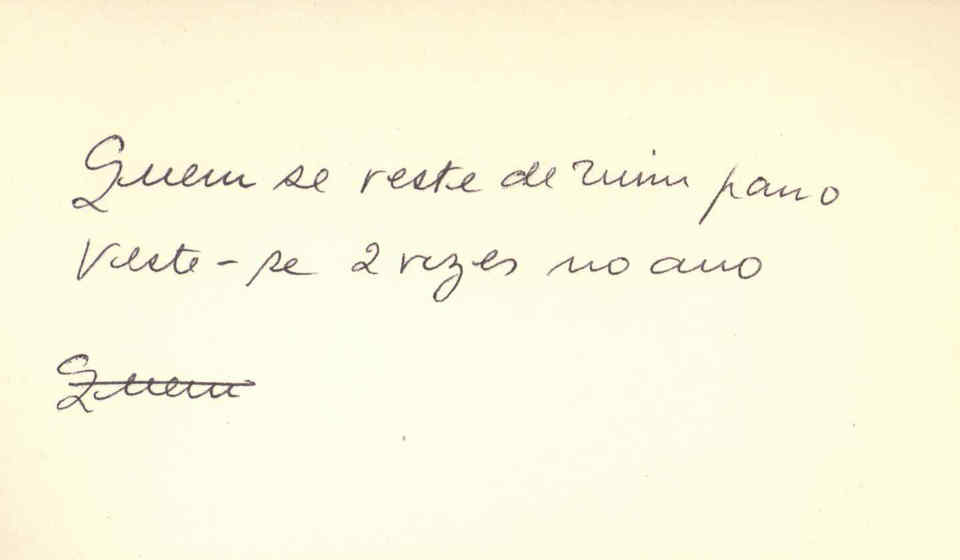 Quem se veste de ruim pano
Veste-se 2 vezes no ano
Quem